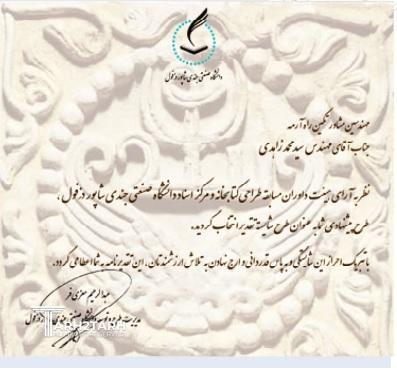 دانشگاه صنعتی جندی شاپور دزفول
مهندسین مشاور نگین راه آرمه
جناب آقای مهندس سید محمد زاهدی
نظر به آرای هیئت داوران مسابقه طراحی کتابخانه و مرکز اسناد دانشگاه صنعتی جندی شاپور دزفول ،
طرح پیشنهادی شما به عنوان طرح شایسته تقدیر انتخاب گردید.
با تبریک احراز این شایستگی و به پاس قدردانی و ارج نهادن به تلاش ارزشمندتان، این تقدیرنامه به شما اعطا می گردد.
عبدالرحیم معزی فر
مدیریت طرح و توسعه دانشگاه صنعتی جندی دزفول
TARH2TARH